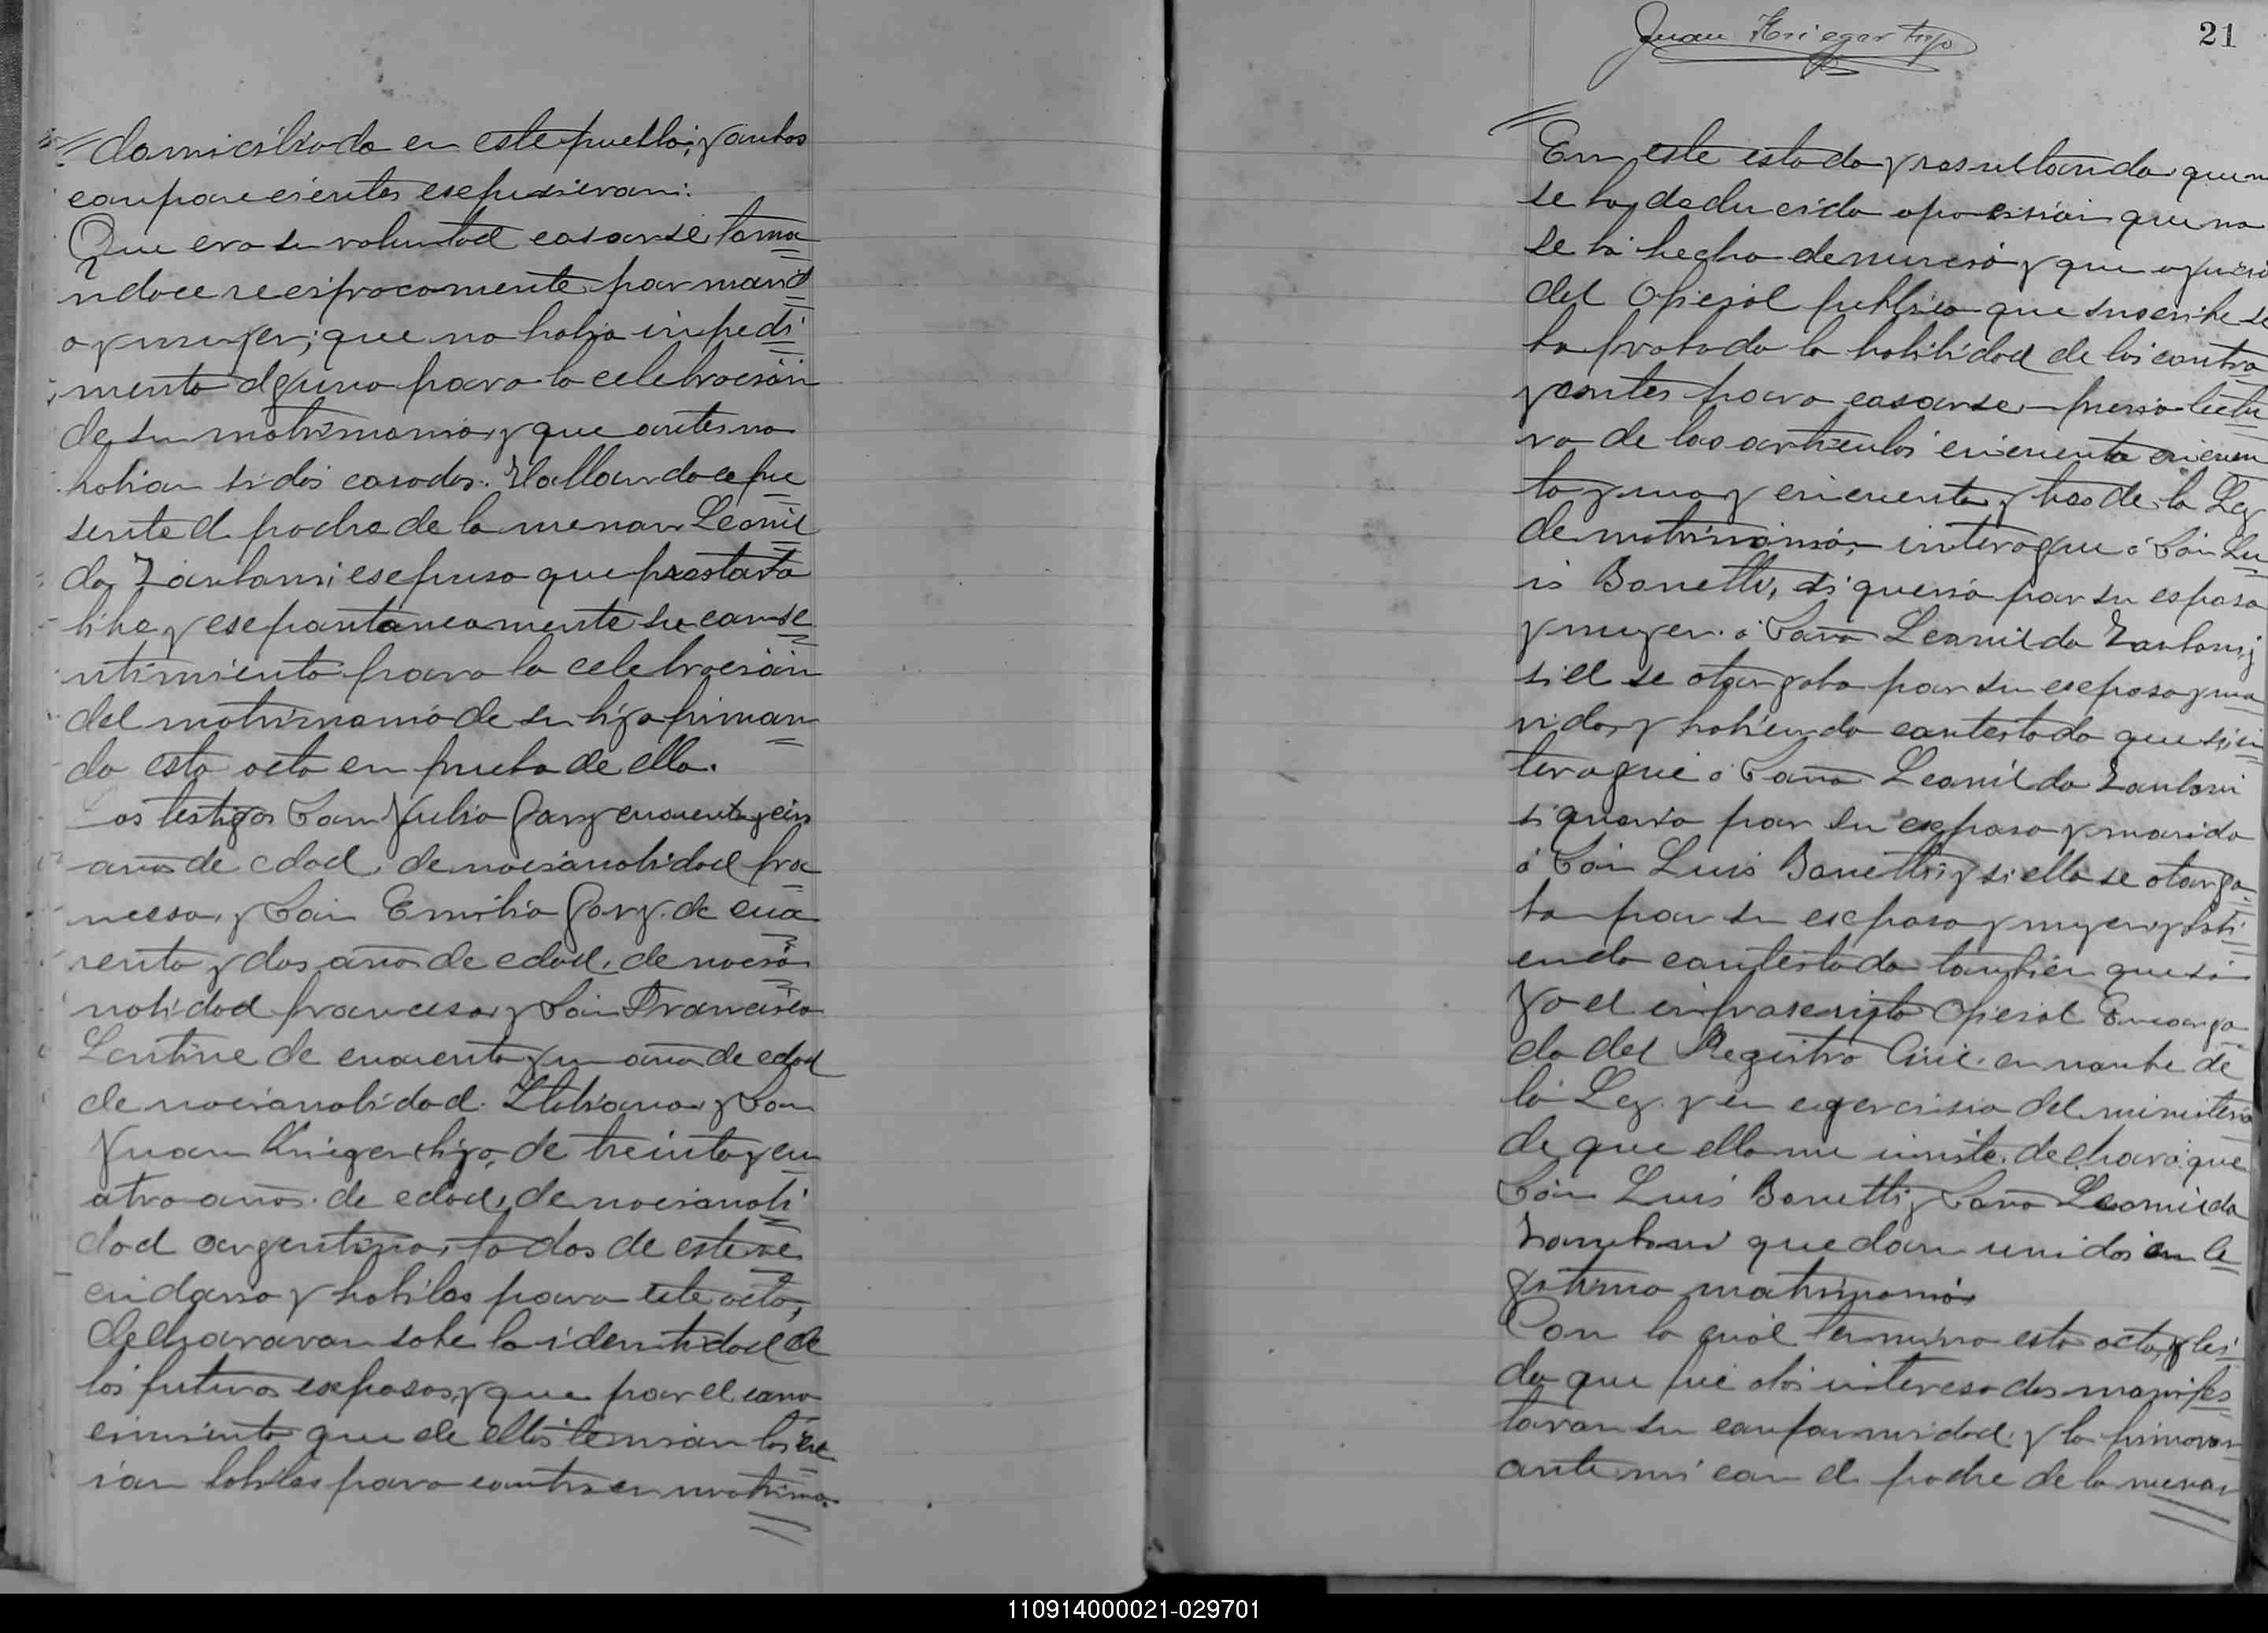 domiciliada en este pueblo; y ambos
conparecientes esepusieron:
Que era su voluntad casarse toma
ndoce reciprocamente por marid
o y muger; que no habia inpedi
mento alguno para la celebracion
de su matrimonio, y que antes no
habian sidos casados. Hallandoce pre
sente el padre de la menor Leonil
da Zanboni esepuso que prestava
libre y esepontaneamente su conse
ntimiento para la celebracion
del matrimonio de su hija firman
do esta acta en prueba de ello.
Los testigos Don Julio Gary cuarenta y cin
años de edad, de nacionalidad fra
ncesa, y Don Emilio Gary de cua
renta y dos años de edad, de nacio
nalidad francesa, y Don Francisco
Lentine de cuarenta y un años de edad
de nacionalidad Italiana, y Don
Juan Kriger hijo, de treinta y cu
atro años de edad, de nacionali
dad argentina, todos de este ve
cindario y habiles para este acto,
declararan sobe la identidad de
los futuros esposos, y que por el cono
cimiento que de ellos tenian los cre
ian habiles para contraer matrimo.
Juan Krieger hijo
21
En este estado y resultando que no
se ha deducido oposision que no
se ha hecho denuncia y que a juicio
del Oficial publico que suscribe se
ha probado la habilidad de los contra
yentes para casarse, previa lectu
ra de los articulos cincuenta cincuen
ta y uno y cincuenta y tres de la Ley
de matrimonio, interogue á Don Lu
is Bonetti, si queria por su esposa
y muger á Doña Leonilda Zanboni y
si el se otorgaba por su esposo y ma
rido, y habiendo contestado que si in
terogue á Doña Leonilda Zanboni
si queria por su esposo y marido
á Don Luis Bonetti y si ella se otorga
ba por su esposa y muger, y habi
endo contestado tanbien que si
Yo el infrascripto Oficial Encarga
do del Registro Civil en nonbe de
la Ley y en egercisio del ministerio
de que ella me inviste, declaro que
Don Luis Bonetti y Doña Leonilda
Zanboni quedan unidos en le
gitimo matrimonio
Con lo cual termino esta acta, y lei
da que fue a los interesados manifes
taron su confarmidad, y la firmaron
ante mi con el padre de la menor
110914000021-029701